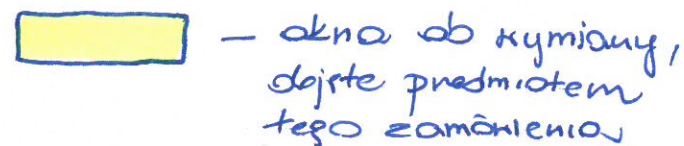 – okna do wymiany,
objęte przedmiotem
tego zamówienia